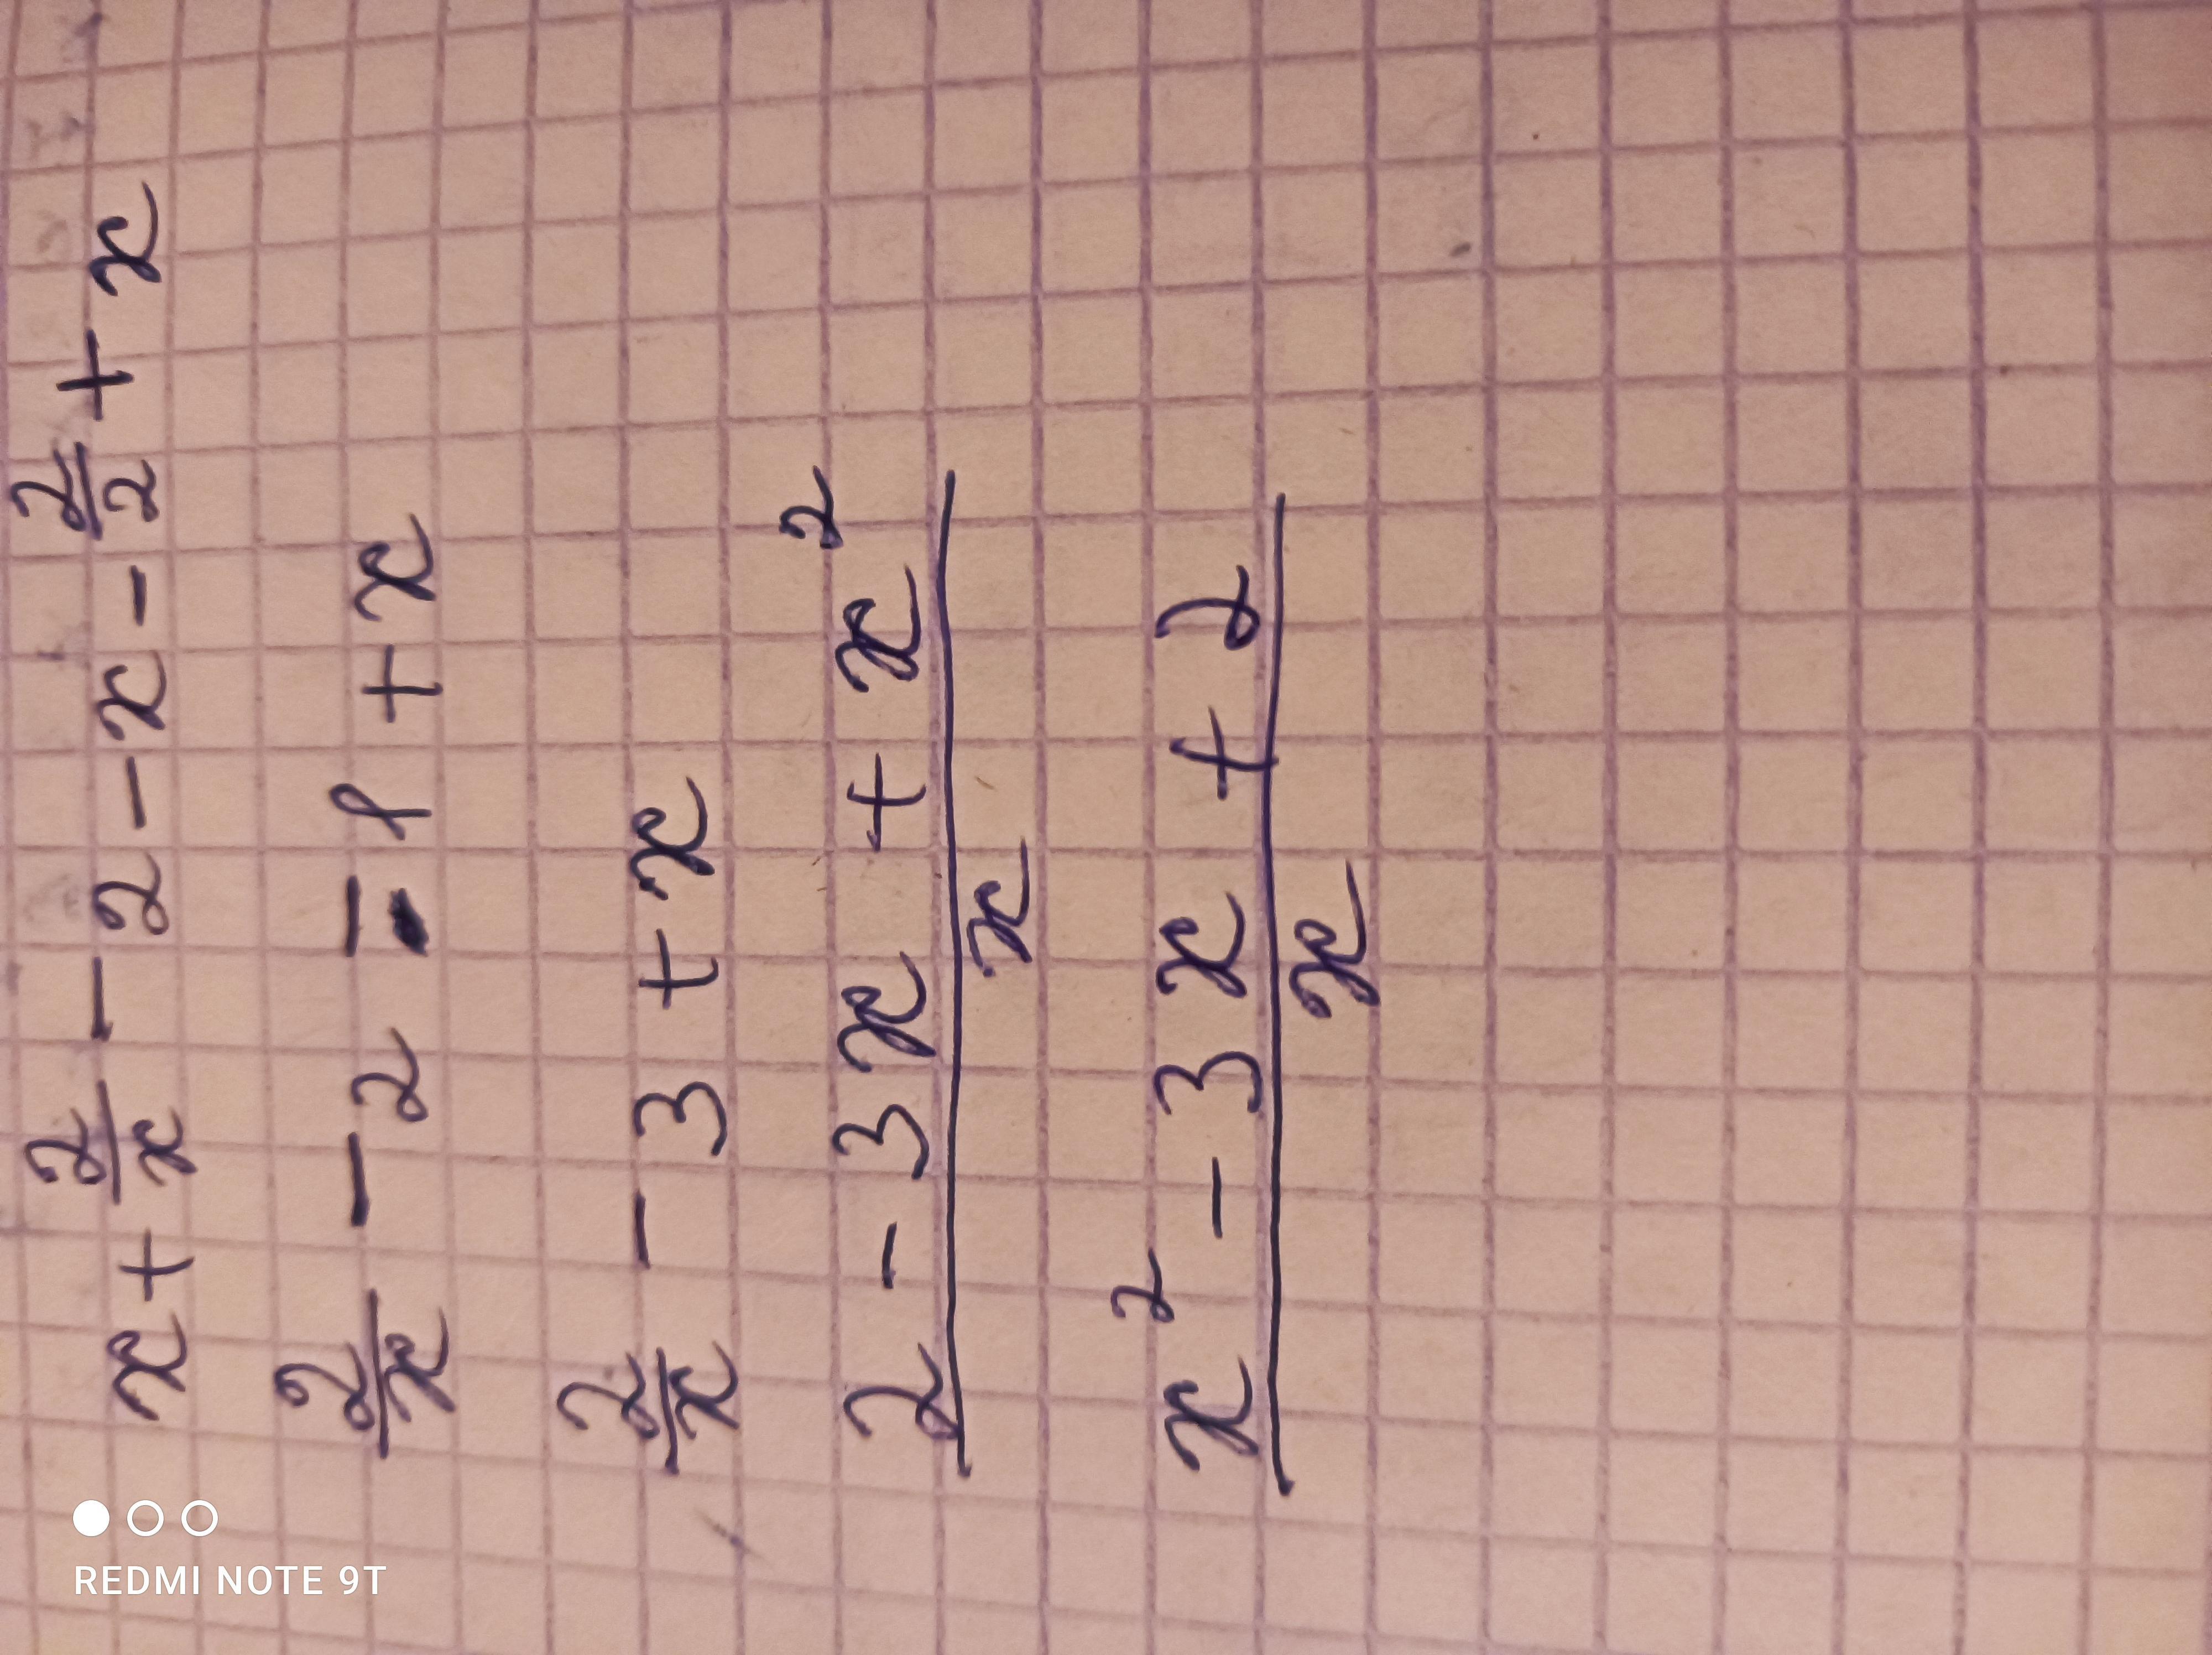 x + 2/x - 2 - x - 2/2 + x
2/x - 2 - 1 + x
2/x - 3 + x
2 - 3x + x² / x
x² - 3x + 2 / x
REDMI NOTE 9T